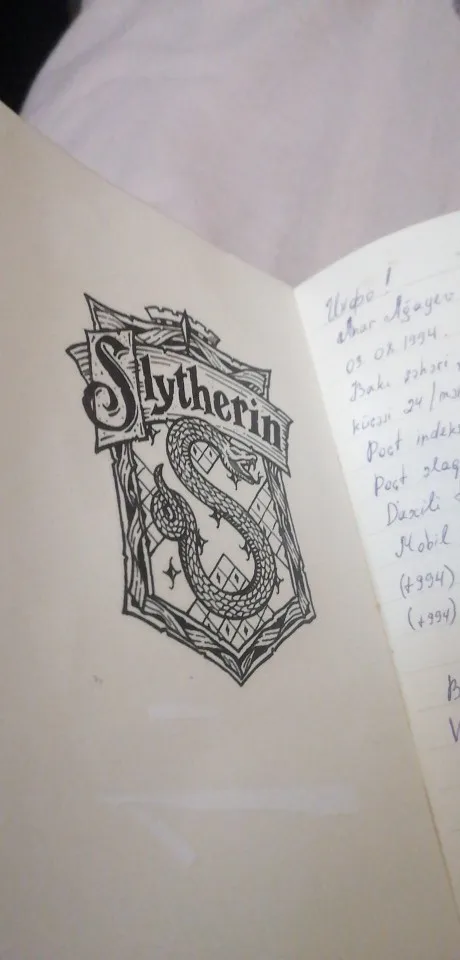 Slytherin
Инфо!
Anar Ağayev
09.08.1994.
Bakı şəhəri
küçəsi 24/mə
Poçt indeks
Poçt əlaq
Daxili
Mobil
(+994)
(+994)